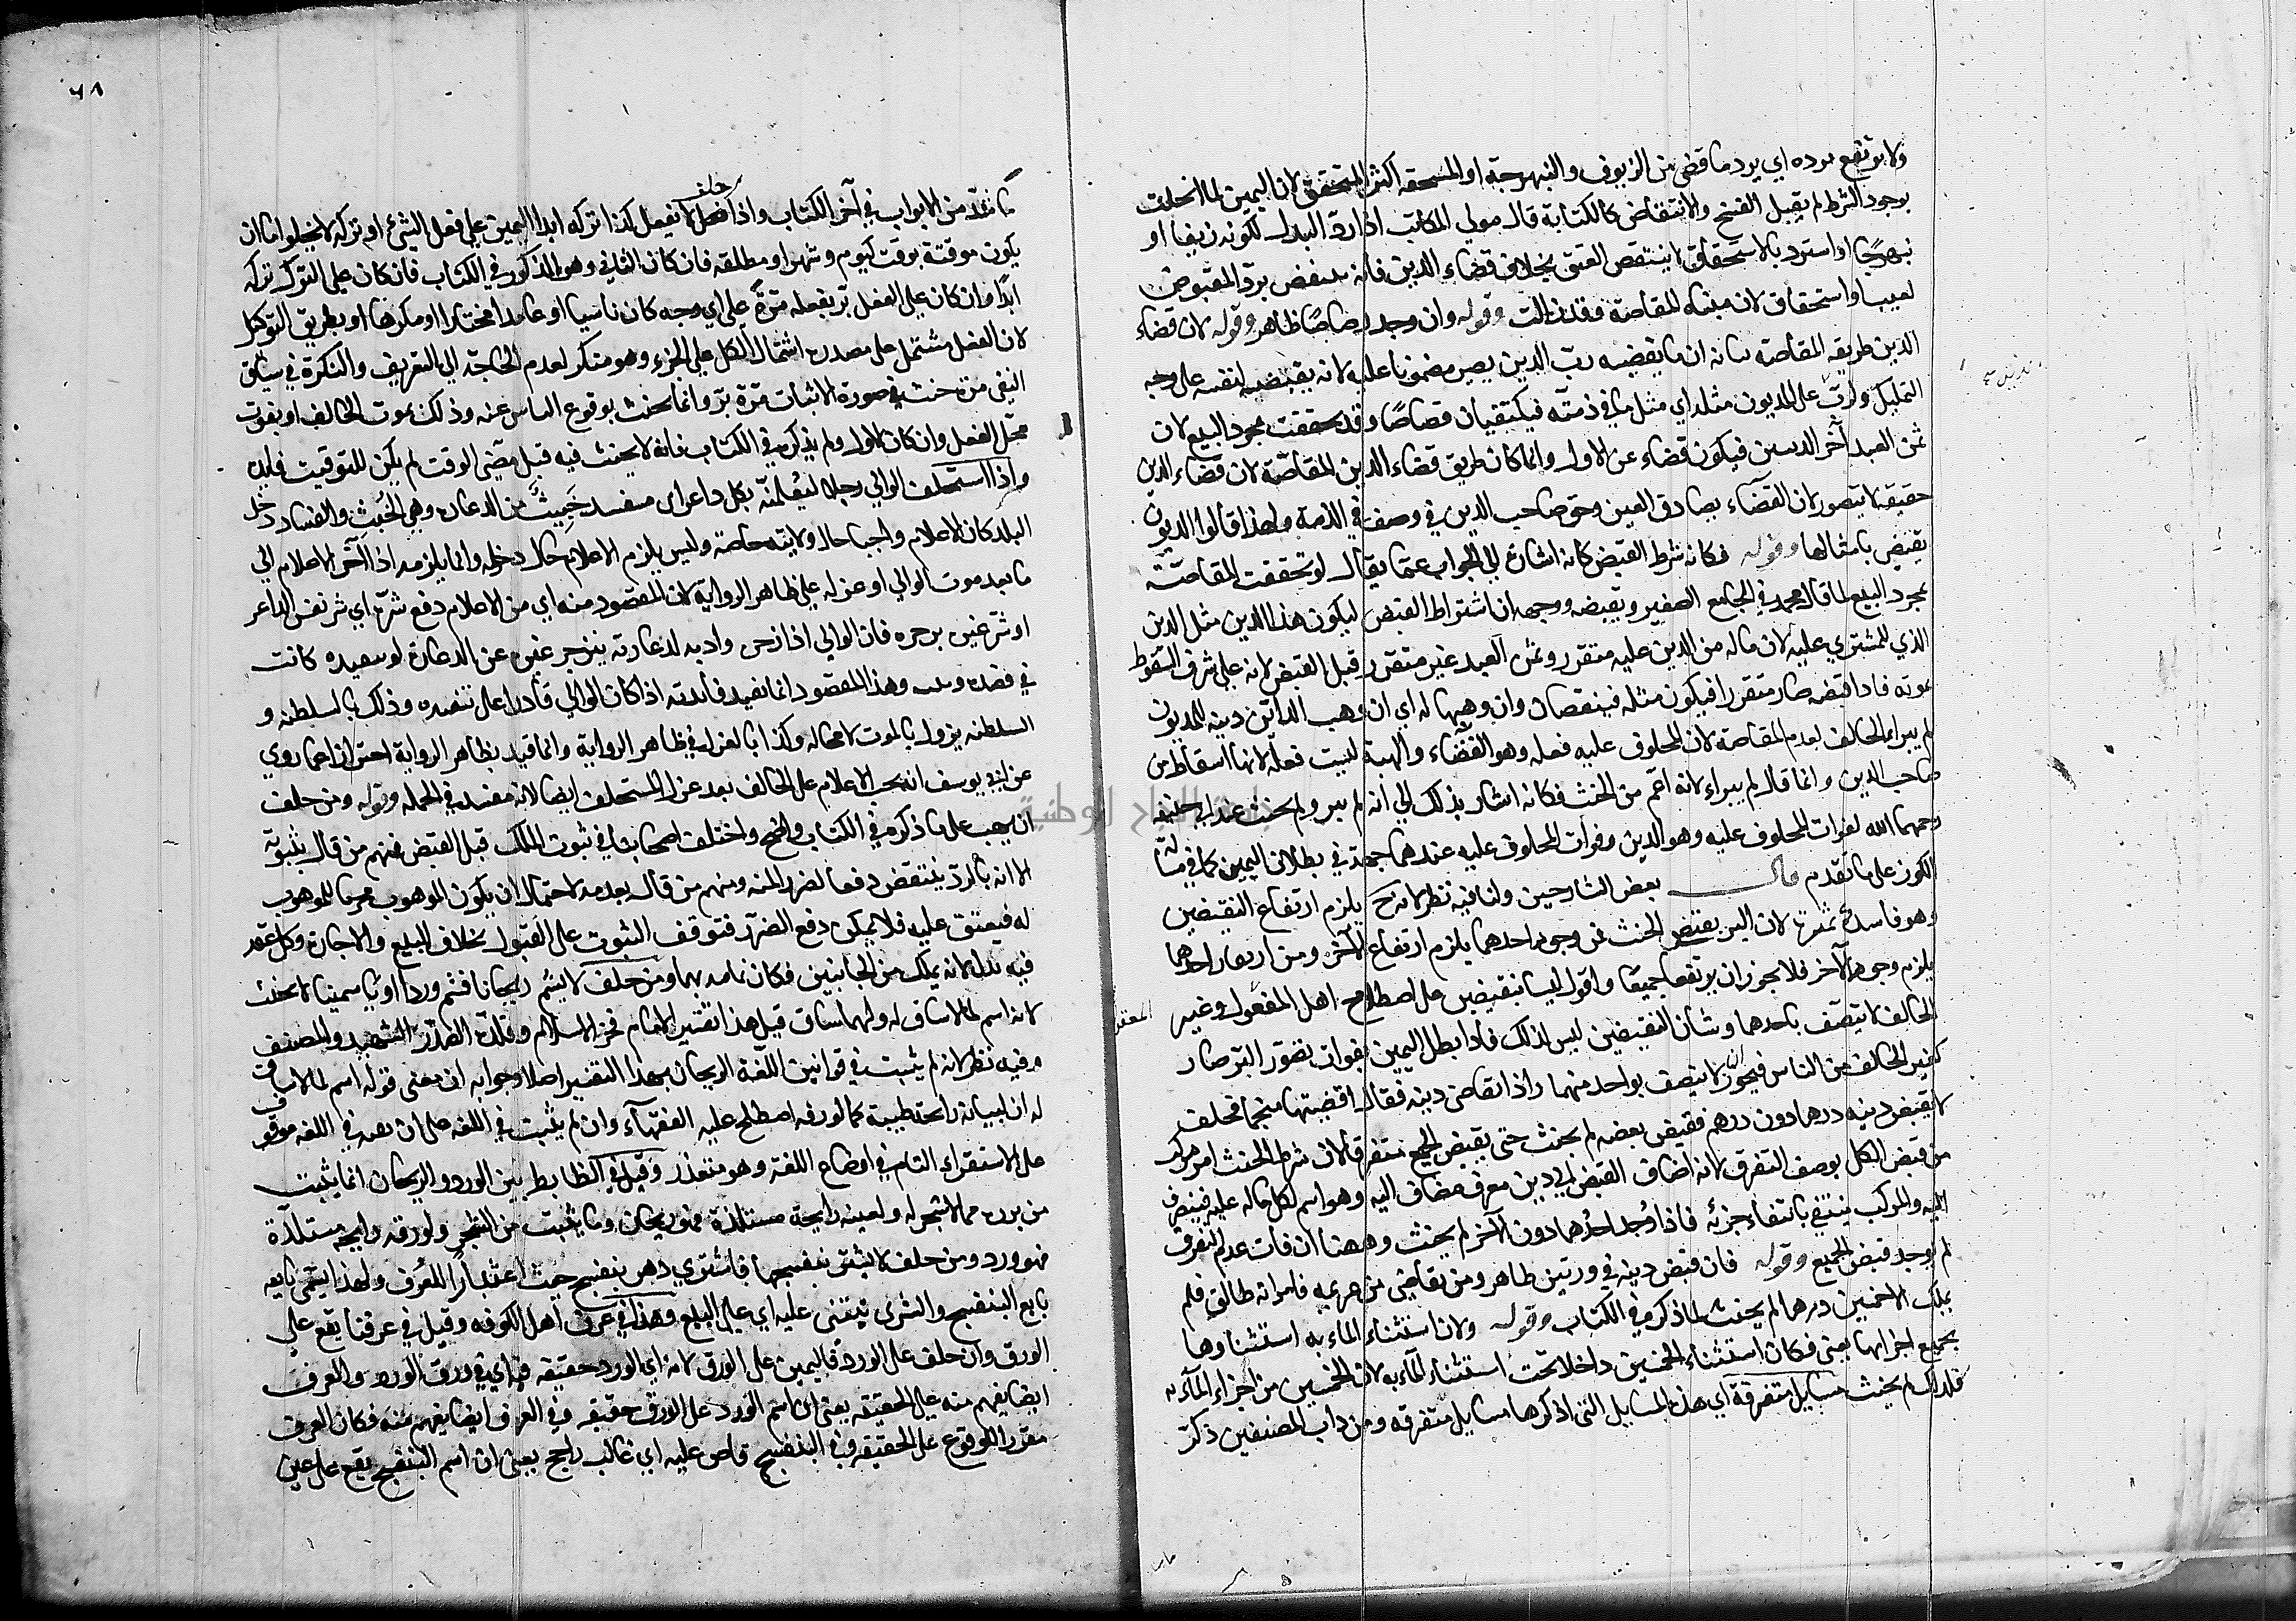 ولا يرتفع برده اي يرد ما قضى من الزيوف والنبهرجة او المستحقة اكثر المتحقق لان اليمين لما انحلت
بوجود الشرط لم يقبل الفسخ والانتقاض كالكتابة فان مولى المكاتب اذا رد البدل لكونه زيفا او
نبهرجا او استرد بالاستحقاق لا ينتقض العتق بخلاف قضاء الدين فانه ينتقض برد المقبوض
لعيب او استحقاق لان مبناه المقاصة وقد زالت وقوله وان وجد رصاصا ظاهر وقوله لان قضاء
الدين طريقه المقاصة بيانه ان ما يقبضه رب الدين يصير مضمونا عليه لانه يقبضه لنفسه على وجه
التمليك ولرب على المديون مثله اي مثل ما في ذمته فيلتقيان قصاصا وقد تحققت بمجرد البيع لان
ثمن العبد آخر الدينين فيكون قضاء عن الاول وانما كان طريق قضاء الدين المقاصة لان قضاء الدين
حقيقة لا يتصور لان القضاء يصادق العين وحق صاحب الدين في وصف في الذمة ولهذا قالوا الديون
تقضى بامثالها وقوله فكانه شرط القبض كانه اشارة الى الجواب عما يقال لو تحققت المقاصة
بمجرد البيع لما قال محمد في الجامع الصغير ويقبضه ووجهه ان اشتراط القبض ليكون هذا الدين مثل الدين
الذي للمشتري عليه لان ماله من الدين عليه متقرر وثمن العبد غير متقرر قبل القبض لانه على شرف السقوط
بموته فاذا قبضه صار متقررا فيكون مثله فيتقاصان وان وهبها له اي ان وهب الدائن دينه للمديون
لم يبر اي الحالف لعدم المقاصة لان المحلوف عليه فعله وهو القضاء والهبة ليست فعله لانها اسقاط من
صاحب الدين وانما قال لم يبر لانه اعم من الحنث فكانه اشار بذلك الى انه لم يبر ولم يحنث عند ابي حنيفة
رحمهما الله لفوات المحلوف عليه وهو الدين وفوات المحلوف عليه عندهما جهة في بطلان اليمين كما في مسالة
الكوز على ما تقدم قال بعض الشارحين ولنا فيه نظر لانه ح يلزم ارتفاع النقيضين
وهو فاسد لان البر نقيض الحنث فمن وجود احدهما يلزم ارتفاع الآخر ومن ارتفاع احدهما
يلزم وجود الآخر فلا يجوز ان يرتفعا جميعا واقول ليسا بنقيضين على اصطلاح اهل المعقول وغير
الحالف لا يتصف باحدهما وشان النقيضين ليس كذلك فاذا بطل اليمين بفوات تصور البر صار
كغير الحالف من الناس فيجوز ان لا يتصف بواحد منهما واذا تقاضى دينه فقال اقضيتها منجما فحلف
لا يقبض دينه درهما دون درهم فقبض بعضه لم يحنث حتى يقبض الجميع متفرقا لان شرط الحنث امر مركب
من قبض الكل بوصف التفرق لانه اضاف القبض الى دين معرف مضاف اليه وهو اسم لكل ماله عليه فينصرف
اليه والمركب ينتفي بانتفاء جزئه فاذا وجد احدهما دون الآخر لم يحنث وههنا ان فات عدم التفرق
لم يوجد قبض الجميع وقوله فان قبض دينه في وزنتين ظاهر ومن تقاضى من غريمه فامراته طالق فلم
يملك الا خمسين درهما لم يحنث لما ذكر في الكتاب وقوله ولان استثناء الماء به استثناوها
بجميع اجزائها يعني فكان استثناء الخمسين داخلا تحت استثناء الماءبه لان الخمسين من اجزاء الماءبه
فلذلك لم يحنث مسايل متفرقة اي هذه المسايل التي اذكرها مسايل متفرقه ومن داب المصنفين ذكر
٦٨
ما شذ من الابواب في آخر الكتاب واذا حلف لا يفعل كذا تركه ابدا اليمين على فعل الشيء او تركه لا يخلو اما ان
يكون موقتة بوقت كيوم وشهر او مطلقه فان كان الثاني وهو المذكور في الكتاب فان كان على الترك تركه
ابدا وان كان على الفعل بر بفعله مرة على اي وجه كان ناسيا او عامدا مختارا او مكرها او بطريق التوكيل
لان الفعل مشتمل على مصدره اشتمال الكل على الجزء وهو منكر لعدم الحاجة الى التعريف والنكرة في سياق
النفي حنث في صورة الاثبات مرة بر وانما يحنث بوقوع الياس عنه وذلك بموت الحالف او بفوت
محل الفعل وان كان الاول ولم يذكره في الكتاب فانه لا يحنث فيه قبل مضي الوقت لم يكن للتوقيت فايده
واذا استحلف الوالي رجلا ليعلمنه بكل داعر اي مفسد خبيث من الدعارة وهي الخبث والفساد دخل
البلد كان الاعلام واجبا حال ولايته خاصة وليس يلزم الاعلام حال دخوله وانما يلزمه اذا اخر الاعلام الى
ما بعد موت الوالي او عزله على ظاهر الرواية لان المقصود منه اي من الاعلام دفع شره اي شر نفس الداعر
او شر غيره بزجره فان الوالي اذا زجره وادبه لدعارته ينزجر غيره عن الدعارة لو كانت
في قصده وهذا المقصود انما يفيد فائدته اذا كان الوالي قادرا على تنفيذه وذلك بالسلطنه و
السلطنه يزول بالموت لا محاله وكذا بالعزل في ظاهر الرواية وانما قيد بظاهر الرواية احترازا عما روي
عن ابي يوسف انه يجب الاعلام على الحالف بعد عزل المستحلف ايضا لانه مفيد في الجمله وقوله ومن حلف
ان يهب على ما ذكره في الكتاب واضح واختلف اصحابنا في ثبوت الملك قبل القبض فمنهم من قال بثبوته
الا انه بالرد ينتقض دفعا لضرر المنة ومنهم من قال بعدمه لاحتمال ان يكون الموهوب محرما للموهوب
له فيعتق عليه فلا يمكن دفع الضرر فتوقف الثبوت على القبول بخلاف البيع والاجارة وكل عقد
فيه بدل لانه يملك من الجانبين فكان تمامه بهما ومن حلف لا يشم ريحانا فشم وردا او ياسمينا لا يحنث
لانه اسم لما لا ساق له ولهما ساق قيل هذا تفسير الامام فخر الاسلام وقلده الصدر الشهيد والمصنف
وفيه نظر لانه لم يثبت في قوانين اللغة الريحان بهذا التفسير اصلا وجوابه ان معنى قوله اسم لما لا ساق
له ان لساقه رائحة طيبة كما لورقه اصطلح عليه الفقهاء وان لم يثبت في اللغه على ان نفيه في اللغه موقوف
على الاستقراء التام في اوضاع اللغة وهو متعذر وقيل في الضابط بين الورد والريحان انما ينبت
من بزره مما لا شجر له ولعينه رايحة مستلذة فهو ريحان وما ينبت من الشجر ولورقه رايحه مستلذة
فهو ورد ومن حلف لا يشتري بنفسجا فاشترى دهن بنفسج حنث اعتبارا للعرف ولهذا يسمى بايعه
بايع البنفسج والشرى يبتنى عليه اي على البيع وهذا في عرف اهل الكوفه وقيل في عرفنا يقع على
الورق وان حلف على الورد فاليمين على الورق لانه اي الورد حقيقه فيه اي في ورق الورد والعرف
ايضا يفهم منه على الحقيقه يعني ان اسم الورد على الورق حقيقه وفي العرف ايضا يفهم منه فكان العرف
مقررا للوقوع على الحقيقه وفي البنفسج قاض عليه اي غالب راجح يعني ان اسم البنفسج يقع على عين
جامعة النجاح الوطنية